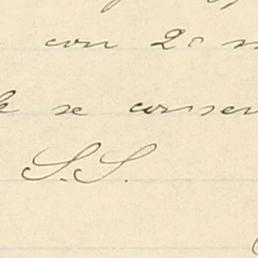 con 2º
se conser
S.S.